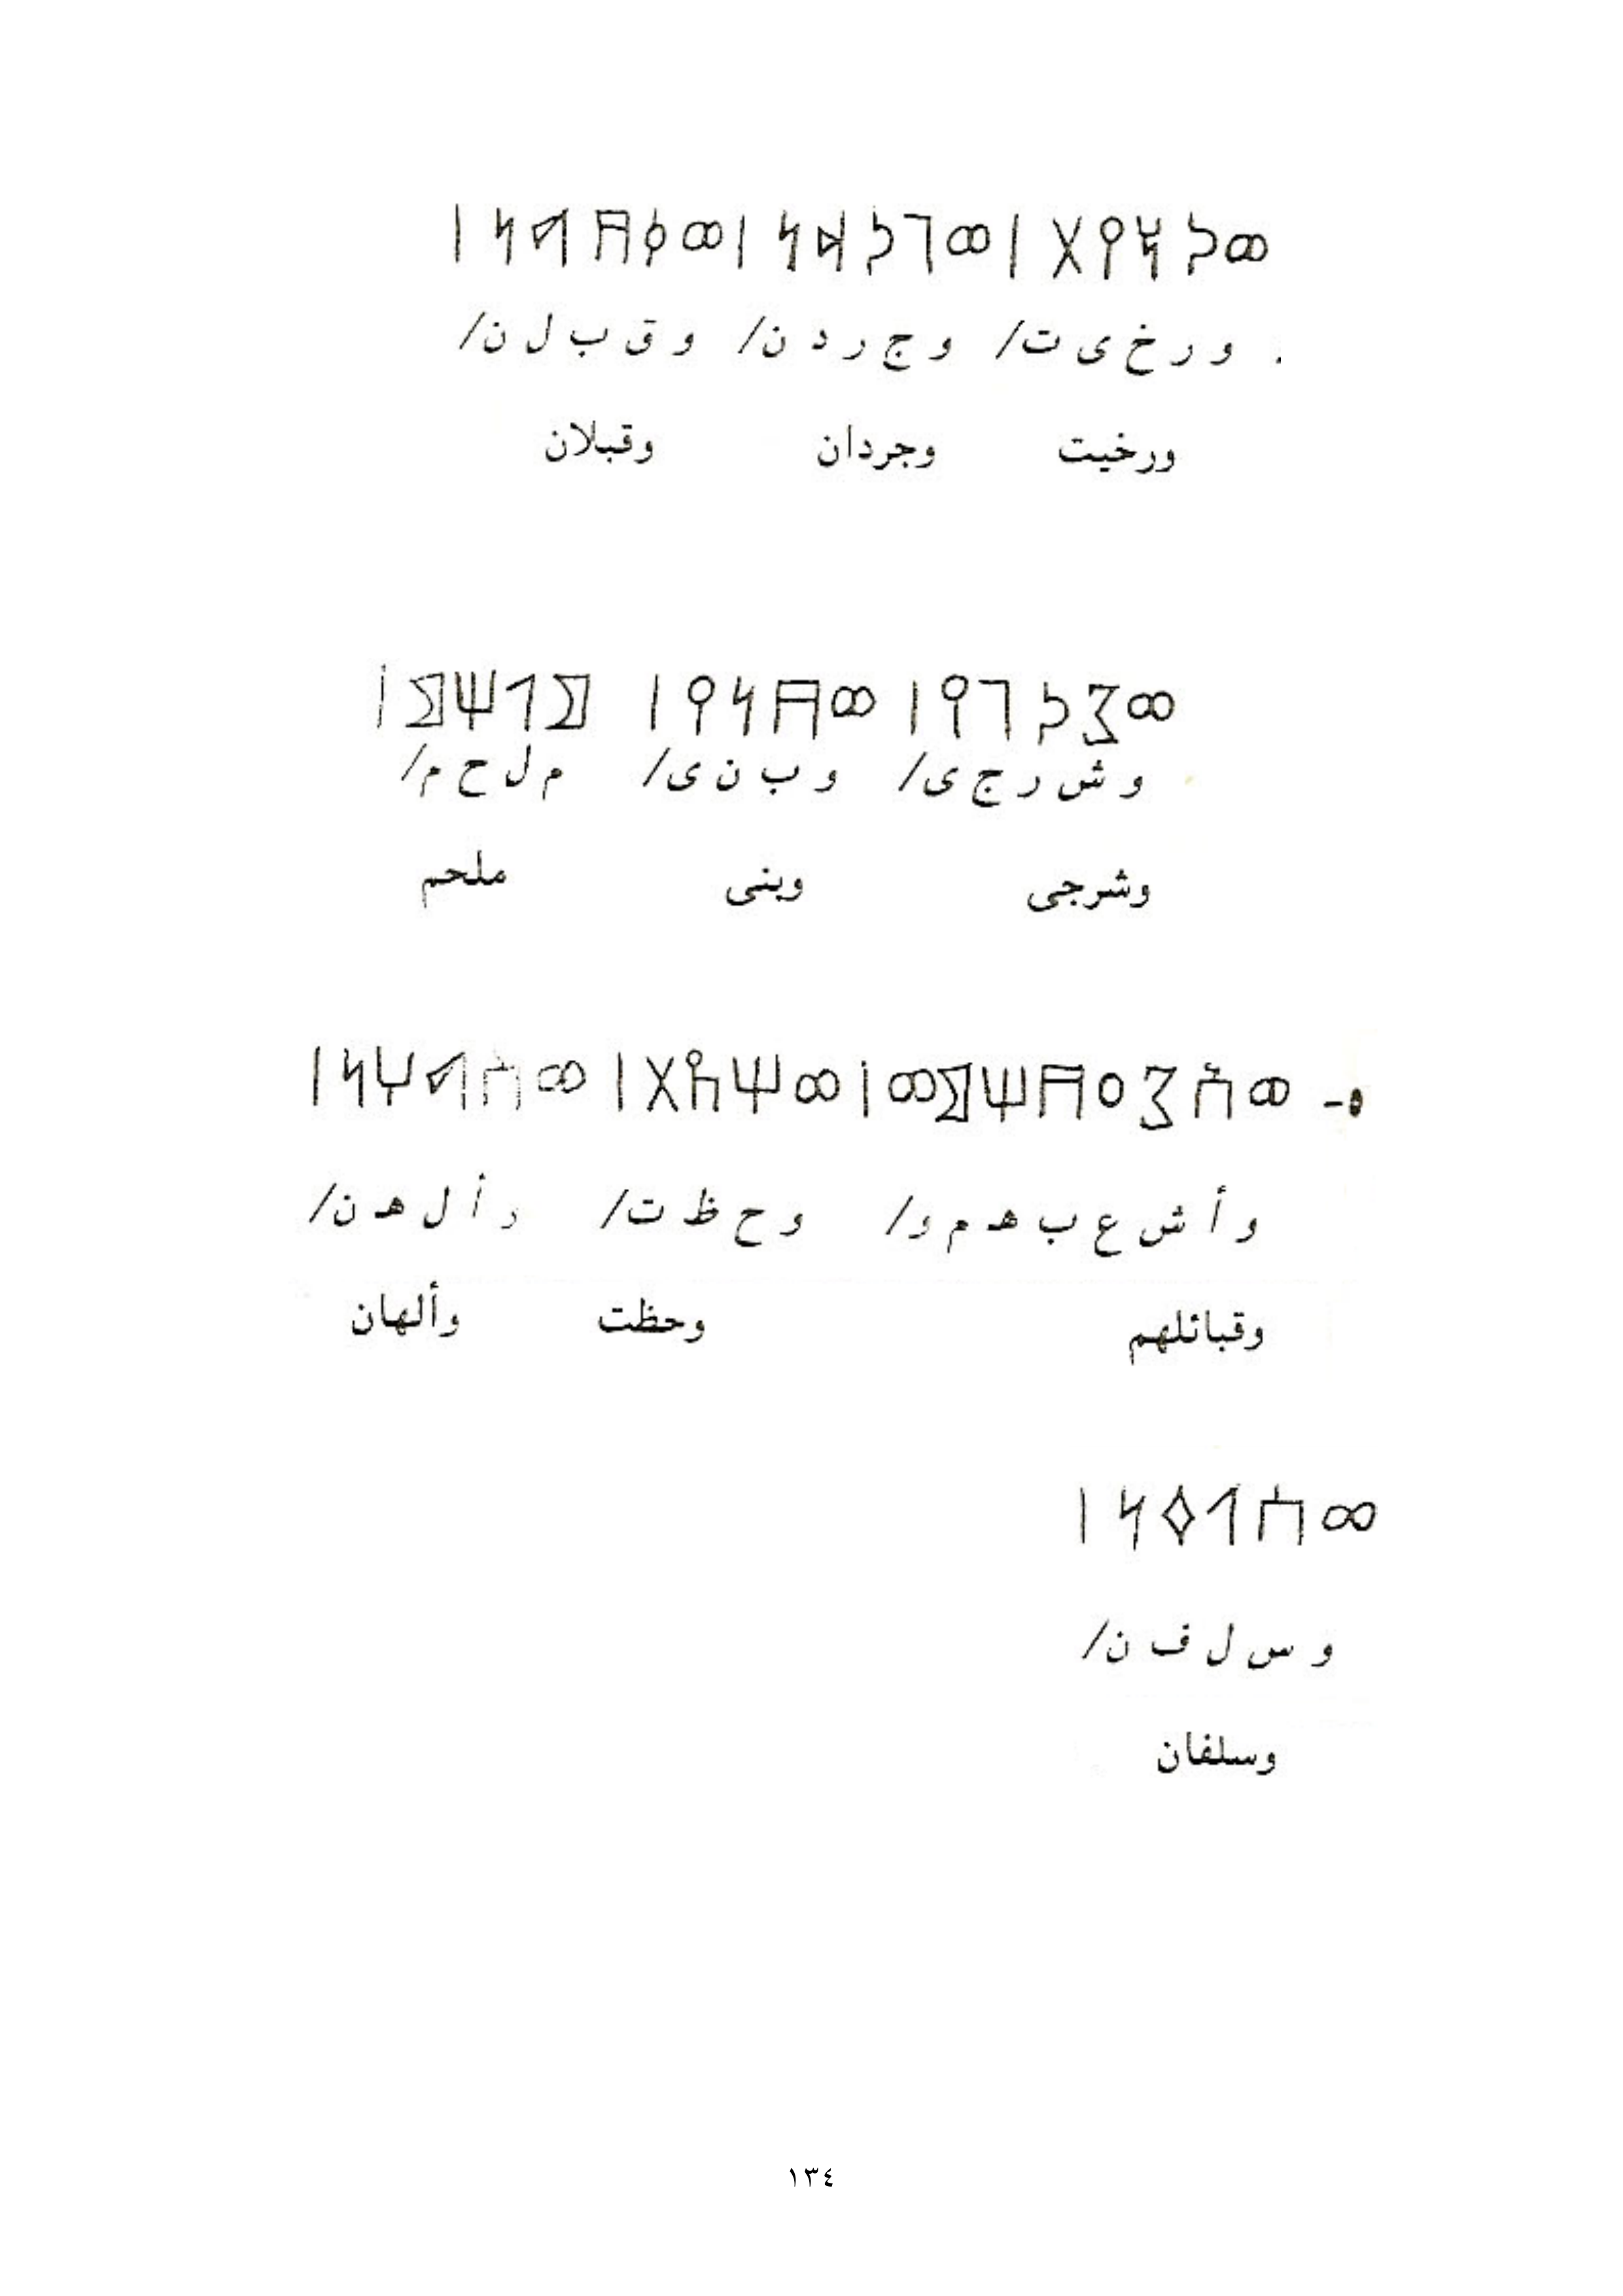 𐩥𐩧𐩭𐩺𐩩 𐩽 𐩥𐩴𐩧𐩵𐩬 𐩽 𐩥𐩤𐩨𐩡𐩬 𐩽
. و ر خ ى ت/ و ج ر د ن/ و ق ب ل ن/
ورخيت وجردان وقبلان
𐩥𐩦𐩧𐩴𐩺 𐩽 𐩥𐩨𐩬𐩺 𐩽 𐩣𐩡𐩢𐩣 𐩽
و ش ر ج ى/ و ب ن ى/ م ل ح م/
وشرجى وبنى ملحم
٥- 𐩥𐩱𐩦𐩲𐩨𐩢𐩣𐩥 𐩽 𐩥𐩢𐩼𐩩 𐩽 𐩥𐩱𐩡𐩠𐩬 𐩽
و أ ش ع ب هـ م و/ و ح ظ ت/ و أ ل هـ ن/
وقبائلهم وحظت وألهان
𐩥𐩪𐩡𐩰𐩬 𐩽
و س ل ف ن/
وسلفان
١٣٤